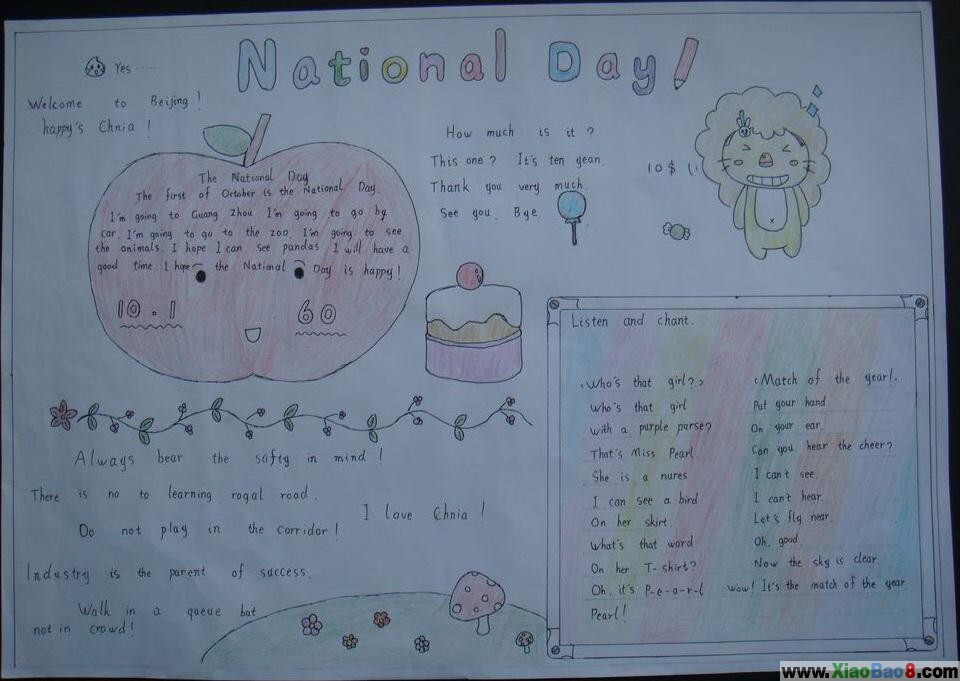 National Day!
Yes ......
Welcome to Beijing!
happy's Chnia!
The National Day
The first of October is the National Day.
I'm going to Guang zhou. I'm going to go by
car. I'm going to go to the zoo. I'm going to see
the animals. I hope I can see pandas. I will have a
good time. I hope the National Day is happy!
10.1
60
How much is it?
This one? It's ten yean.
Thank you very much.
See you. Bye.
10 $
Always bear the safty in mind!
There is no to learning rogal road.
I love Chnia!
Do not play in the corridor!
Industry is the parent of success.
Walk in a queue bat
not in crowd!
Listen and chant.
<Who's that girl?>
Who's that girl
With a purple purse?
That's Miss Pearl.
She is a nures
I can see a bird
On her skirt.
What's that word
On her T-shirt?
Oh, it's P-e-a-r-l
Pearl!
<Match of the year>.
Put your hand
On your ear.
Can you hear the cheer?
I can't see.
I can't hear.
Let's fly near.
Oh, good.
Now the sky is clear.
Wow! It's the match of the year
www.XiaoBao8.com